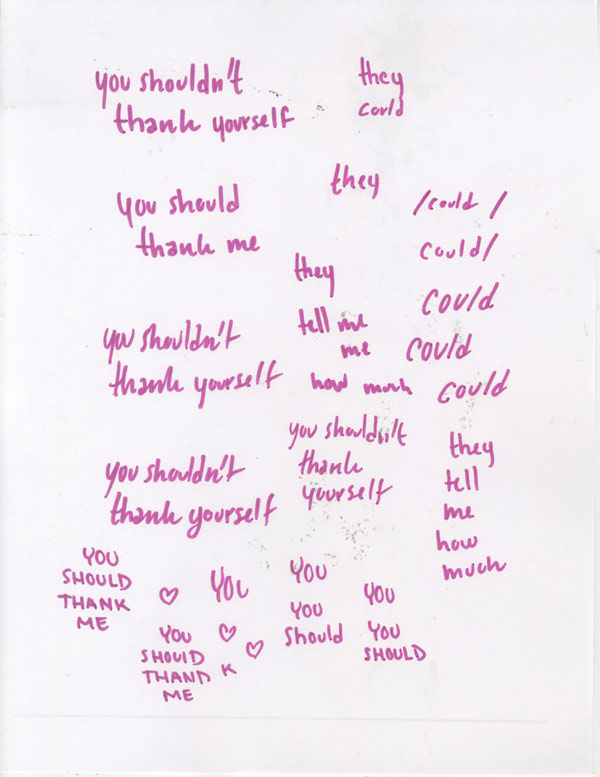 you shouldn't
thank yourself
they
could
you should
thank me
they
/could /
could/
they
could
tell me
me
could
how much
could
you shouldn't
thank yourself
you shouldn't
thank
yourself
they
tell
me
how
much
you shouldn't
thank yourself
YOU
SHOULD
THANK
ME
♡
YOU
YOU
YOU
Should
YOU
YOU
SHOULD
YOU
SHOULD
THAND K
ME
♡
♡